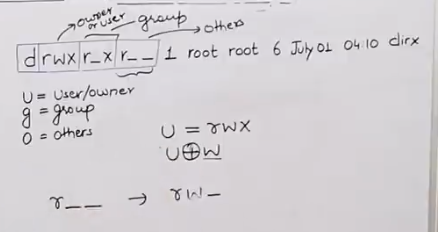 owner or user
group
others
d rwx r_x r__ 1 root root 6 July 01 04:10 dirx
U = User/owner
g = group
o = others
U = rwx
U⊕w
r__ → rw_